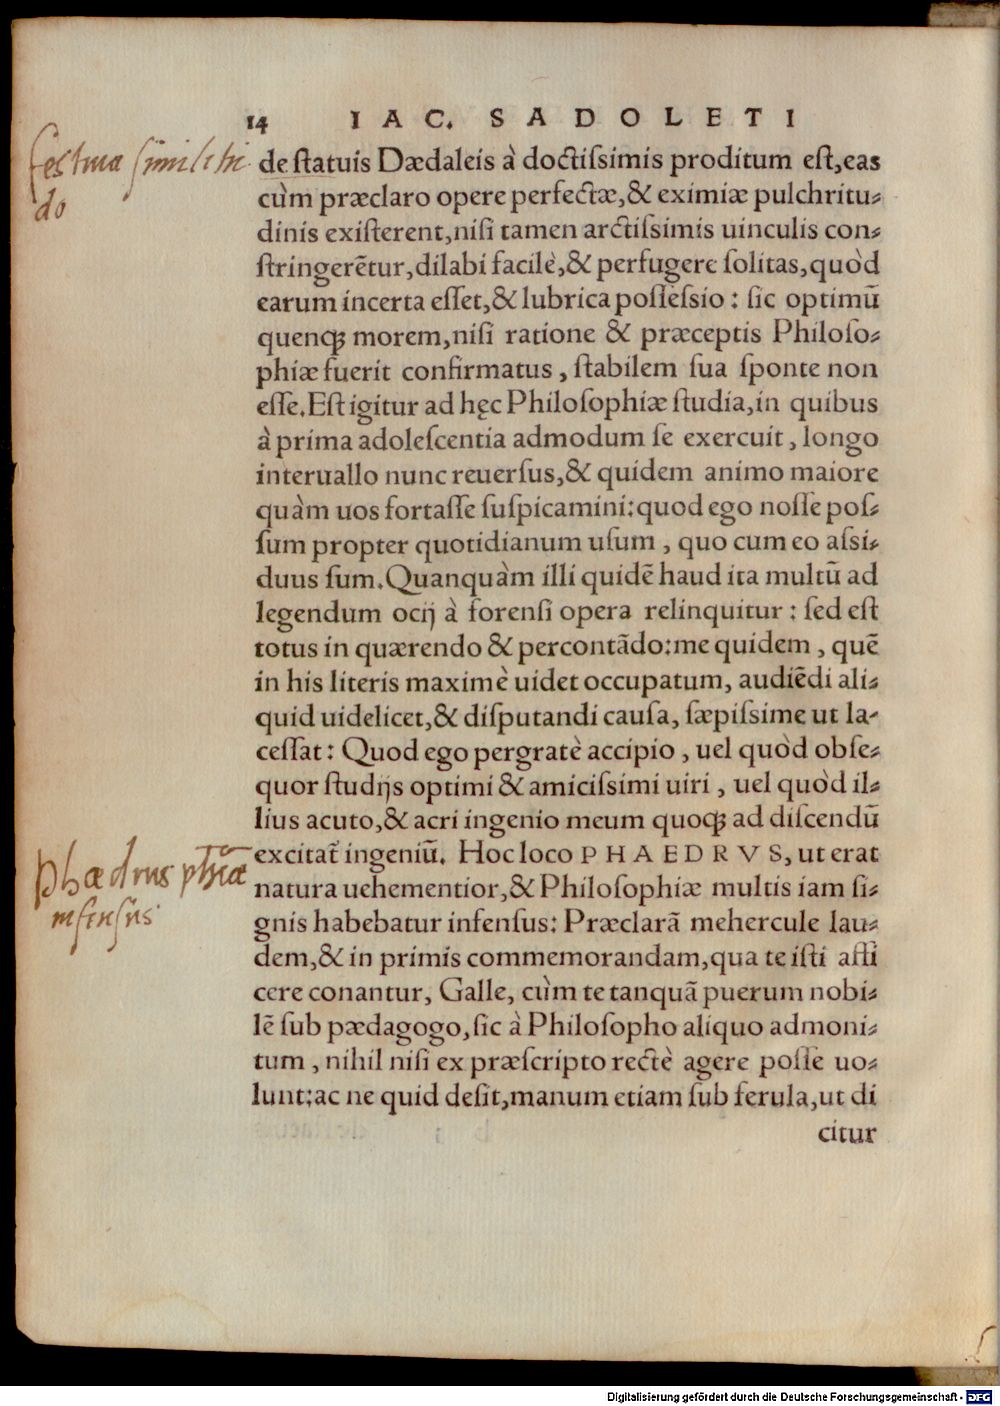 14 IAC. SADOLETI
de statuis Dædaleis à doctissimis proditum est, eas
cùm præclaro opere perfectæ, & eximiæ pulchritu-
dinis existerent, nisi tamen arctissimis uinculis con-
stringerẽtur, dilabi facilè, & perfugere solitas, quòd
earum incerta esset, & lubrica possessio: sic optimũ
quenq; morem, nisi ratione & præceptis Philoso-
phiæ fuerit confirmatus, stabilem sua sponte non
esse. Est igitur ad hęc Philosophiæ studia, in quibus
à prima adolescentia admodum se exercuit, longo
interuallo nunc reuersus, & quidem animo maiore
quàm uos fortasse suspicamini: quod ego nosse pos-
sum propter quotidianum usum, quo cum eo assi-
duus sum. Quanquàm illi quidẽ haud ita multũ ad
legendum ocij à forensi opera relinquitur: sed est
totus in quærendo & percontãdo: me quidem, quẽ
in his literis maximè uidet occupatum, audiẽdi ali-
quid uidelicet, & disputandi causa, sæpissime ut la-
cessat: Quod ego pergratè accipio, uel quòd obse-
quor studijs optimi & amicissimi uiri, uel quòd il-
lius acuto, & acri ingenio meum quoq; ad discendũ
excitat̃ ingeniũ. Hoc loco PHAEDRVS, ut erat
natura uehementior, & Philosophiæ multis iam si-
gnis habebatur infensus: Præclarã mehercule lau-
dem, & in primis commemorandam, qua te isti affi
cere conantur, Galle, cùm te tanquã puerum nobi-
lẽ sub pædagogo, sic à Philosopho aliquo admoni-
tum, nihil nisi ex præscripto rectè agere posse uo-
lunt: ac ne quid desit, manum etiam sub ferula, ut di
citur
festiua similitu
do
Phædrus phiæ
infensus
Digitalisierung gefördert durch die Deutsche Forschungsgemeinschaft - DFG